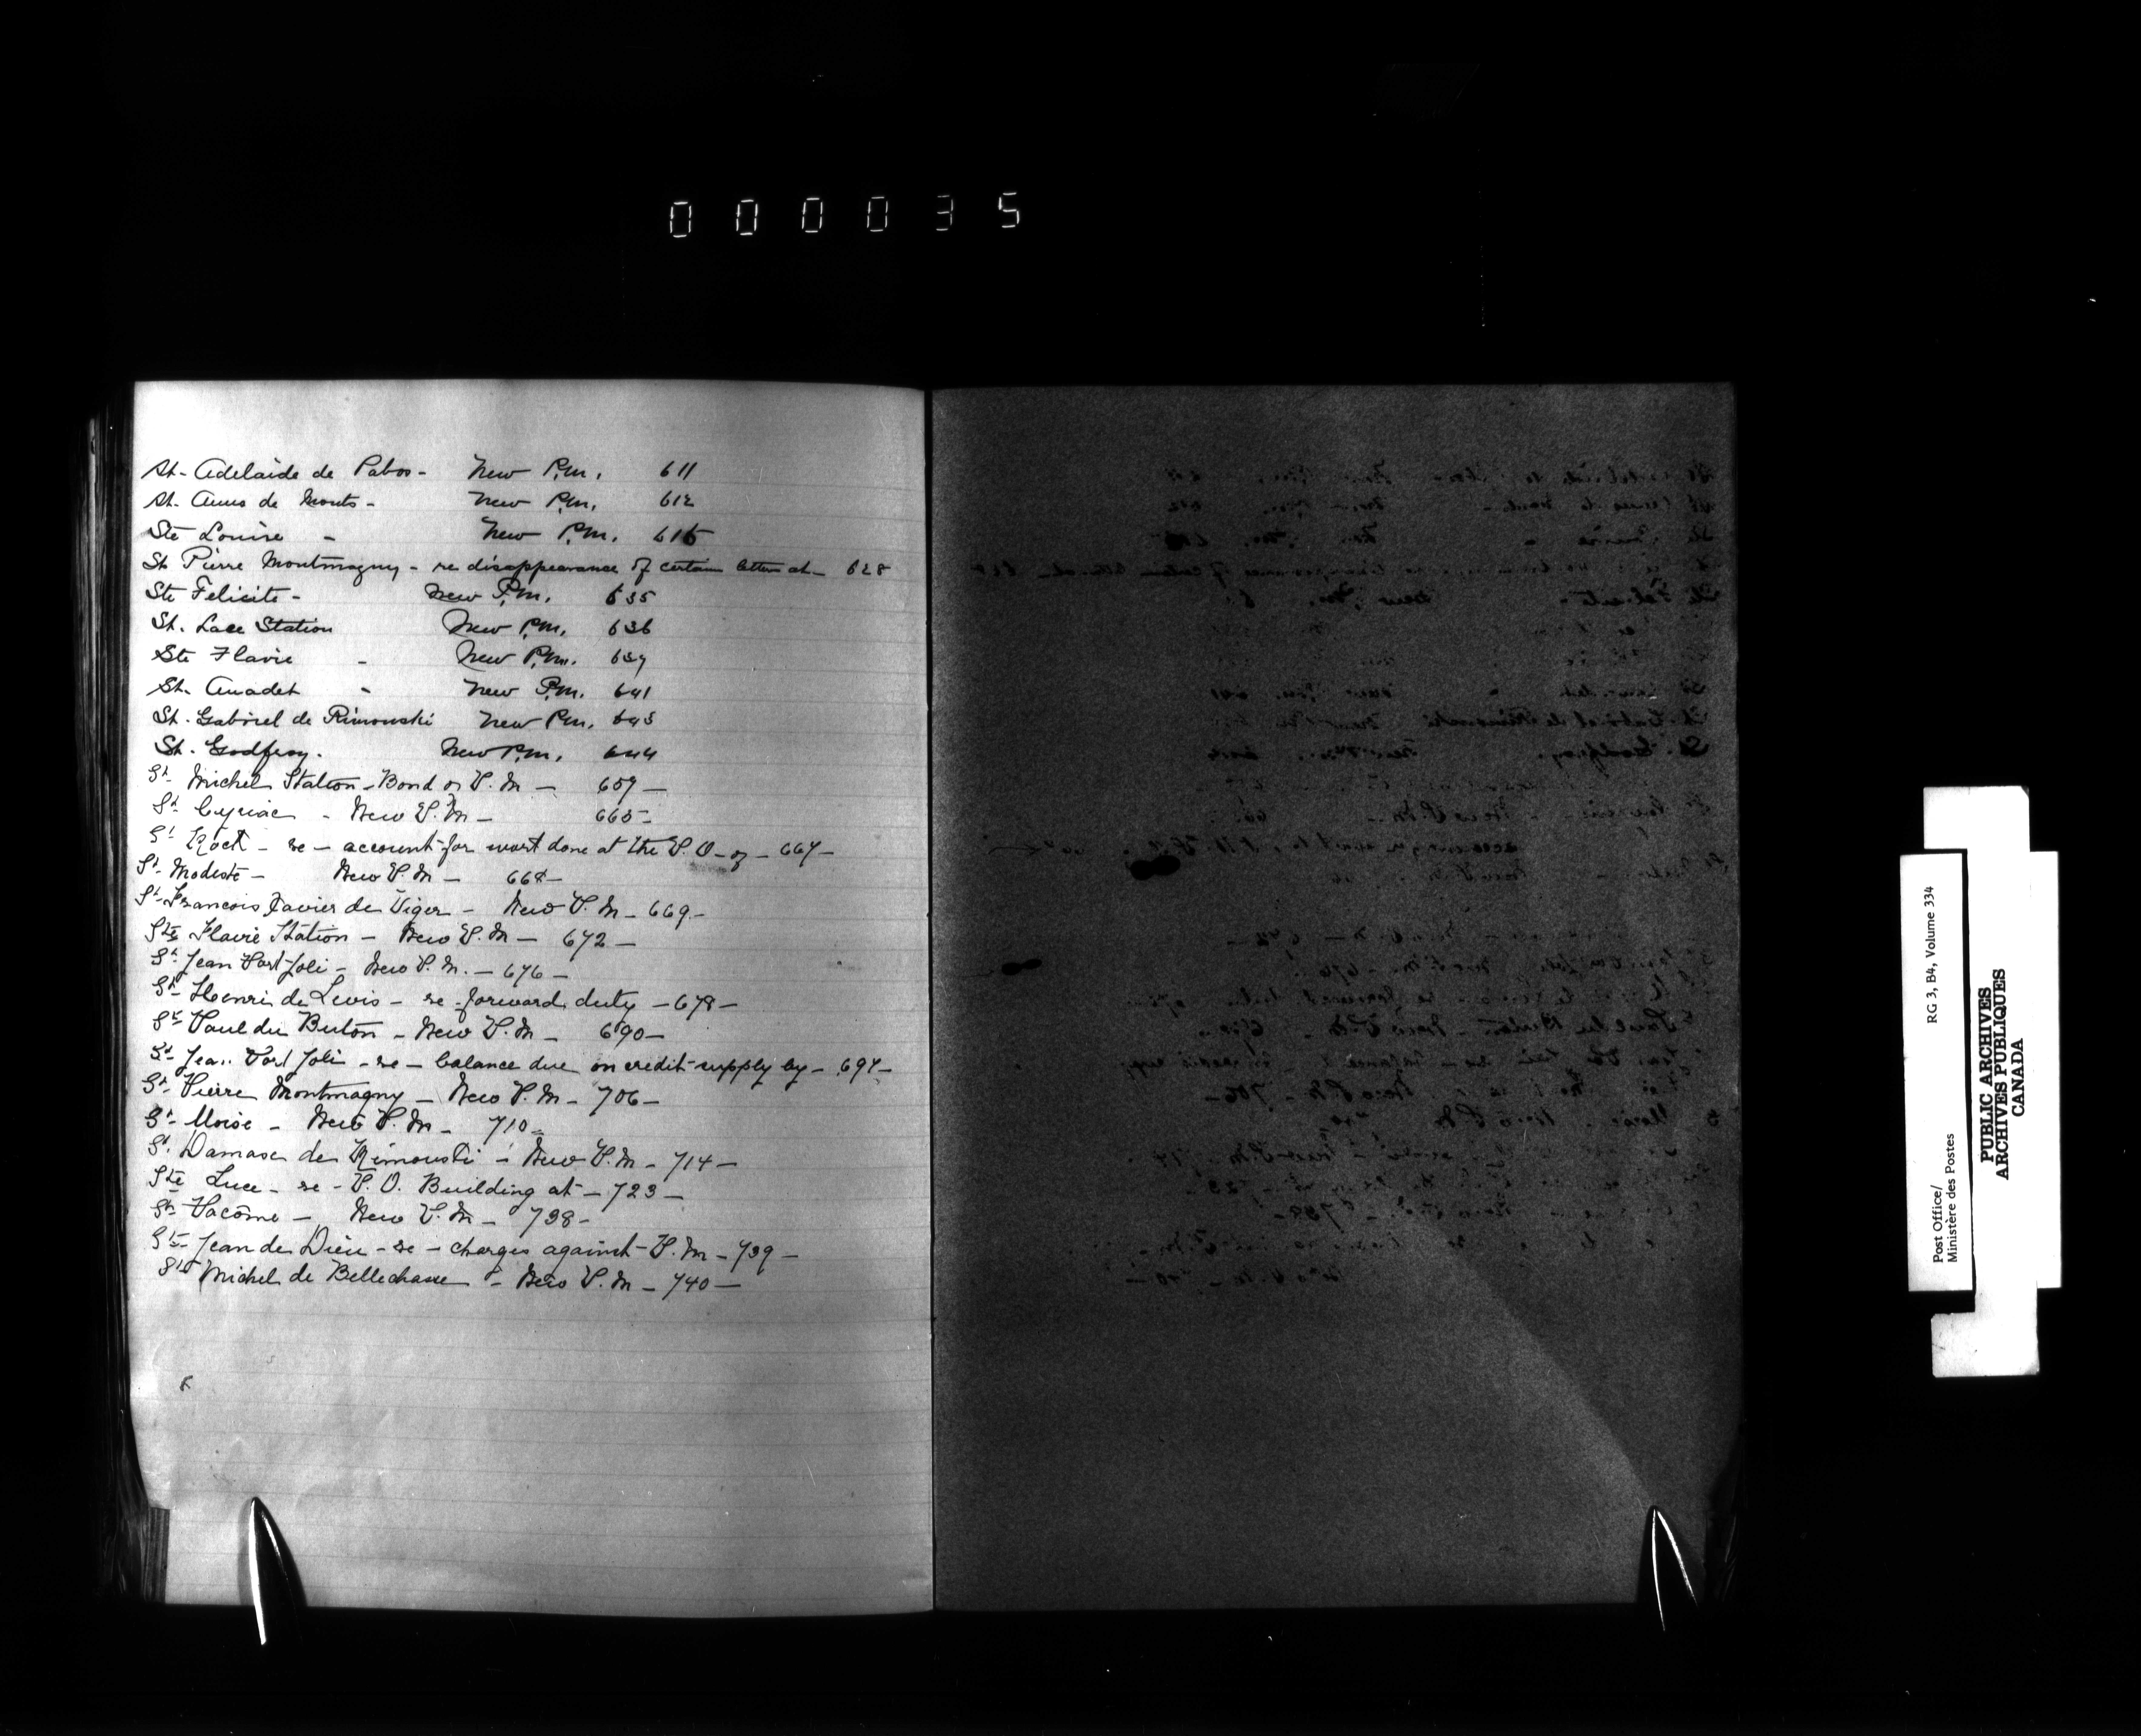 000035
St. Adelaide de Pabos - New P.M. 611
St. Anns de Monts - New P.M. 612
Ste Louise - New P.M. 615
St Pierre Montmagny - re disappearance of certain letters at - 628
Ste Felicite - New P.M. 635
St. Luce Station New P.M. 636
Ste Flavie - New P.M. 639
St. Anaclet - New P.M. 641
St. Gabriel de Rimouski New P.M. 643
St. Godfroy. New P.M. 644
St Michel Station - Bond of P.M - 659 -
St Cyriac - New P.M - 665 -
St Roch - re - account for work done at the P.O - of - 667 -
St Modeste - New P.M - 668 -
St Francois Xavier de Viger - New P.M - 669 -
Ste Flavie Station - New P.M - 672 -
St Jean Port Joli - New P.M. - 676 -
St Henri de Levis - re - forward duty - 678 -
St Paul du Buton - New P.M - 690 -
St Jean Port Joli - re - balance due on credit supply by - 694 -
St Pierre Montmagny - New P.M - 706 -
St Moise - New P.M - 710 -
St Damase de Rimouski - New P.M - 714 -
Ste Luce - re - P.O. Building at - 723 -
St Pacôme - New P.M - 738 -
St Jean de Dieu - re - charges against P.M - 739 -
St Michel de Bellechasse - New P.M - 740 -
Post Office/
Ministère des Postes
RG 3, B4, Volume 334
PUBLIC ARCHIVES
ARCHIVES PUBLIQUES
CANADA